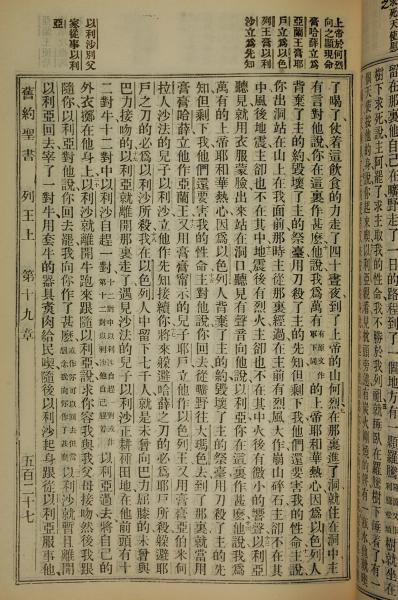 在那裏他自己在曠野走了一日的路程到了一個地方有一顆羅騰
樹就坐在
樹下求死說主阿罷了求主取我的性命我不勝於我列祖就睡臥在羅騰樹下睡着了有一
上帝於何烈
向之顯現命
膏哈薛立為
亞蘭王膏耶
戶立為以色
列王膏以利
沙立為先知
以利沙別父
家從事以利
亞
了喝了仗着這飲食的力走了四十晝夜到了上帝的山何烈在那裏進了洞就住在洞中主
有言對他說你在這裏作甚麼他說我為萬有的上帝耶和華熱心因為以色列人
背棄了主的約毀壞了主的祭臺用刀殺了主的先知但剩下我他們還要害我的性命主說
你出洞站在山上在我面前那時主從那裏經過在主前有烈風大作崩山碎石主卻不在其
中風後地震主卻也不在其中地震後有烈火主卻也不在其中火後有微小的響聲以利亞
聽見就用衣服蒙臉出來站在洞口聽見有聲音向他說以利亞你在這裏作甚麼他說我為
萬有的上帝耶和華熱心因為以色列人背棄了主的約毀壞了主的祭臺用刀殺了主的先
知但剩下我他們還要害我的性命主對他說你回去從曠野往大瑪色去到了那裏就當用
膏膏哈薛立他作亞蘭王又用膏膏甯示的兒子耶戶立他作以色列王又用膏膏亞伯米何
拉人沙法的兒子以利沙立他作先知接續你將來躱避哈薛之刀的必為耶戶所殺躱避耶
戶之刀的必為以利沙所殺我在以色列人中留下七千人就是未曾向巴力屈膝的未曾與
巴力接吻的以利亞就離開那裏走了遇見沙法的兒子以利沙正耕種田地在他前頭有十
二對牛十二對中以利沙自趕一對以利亞過去將自己的
外衣擲在他身上以利沙就離開牛跑來跟隨以利亞說求你容我與我父母接吻然後我跟
隨你以利亞對他說你回去罷我向你作了甚麼以利沙就暫且離開
以利亞回去宰了一對牛用套牛的器具煑肉給民喫隨後以利沙起身跟從以利亞服事他
舊約聖書 列王上 第十九章 五百二十七